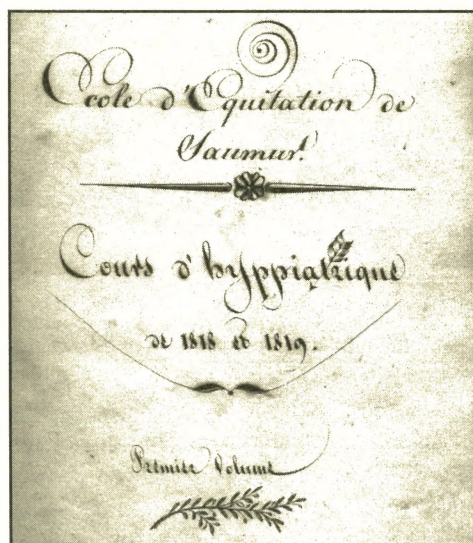 Ecole d'Equitation de
Saumur.
Cours d'hyppiatrique
de 1818 et 1819.
Premier Volume